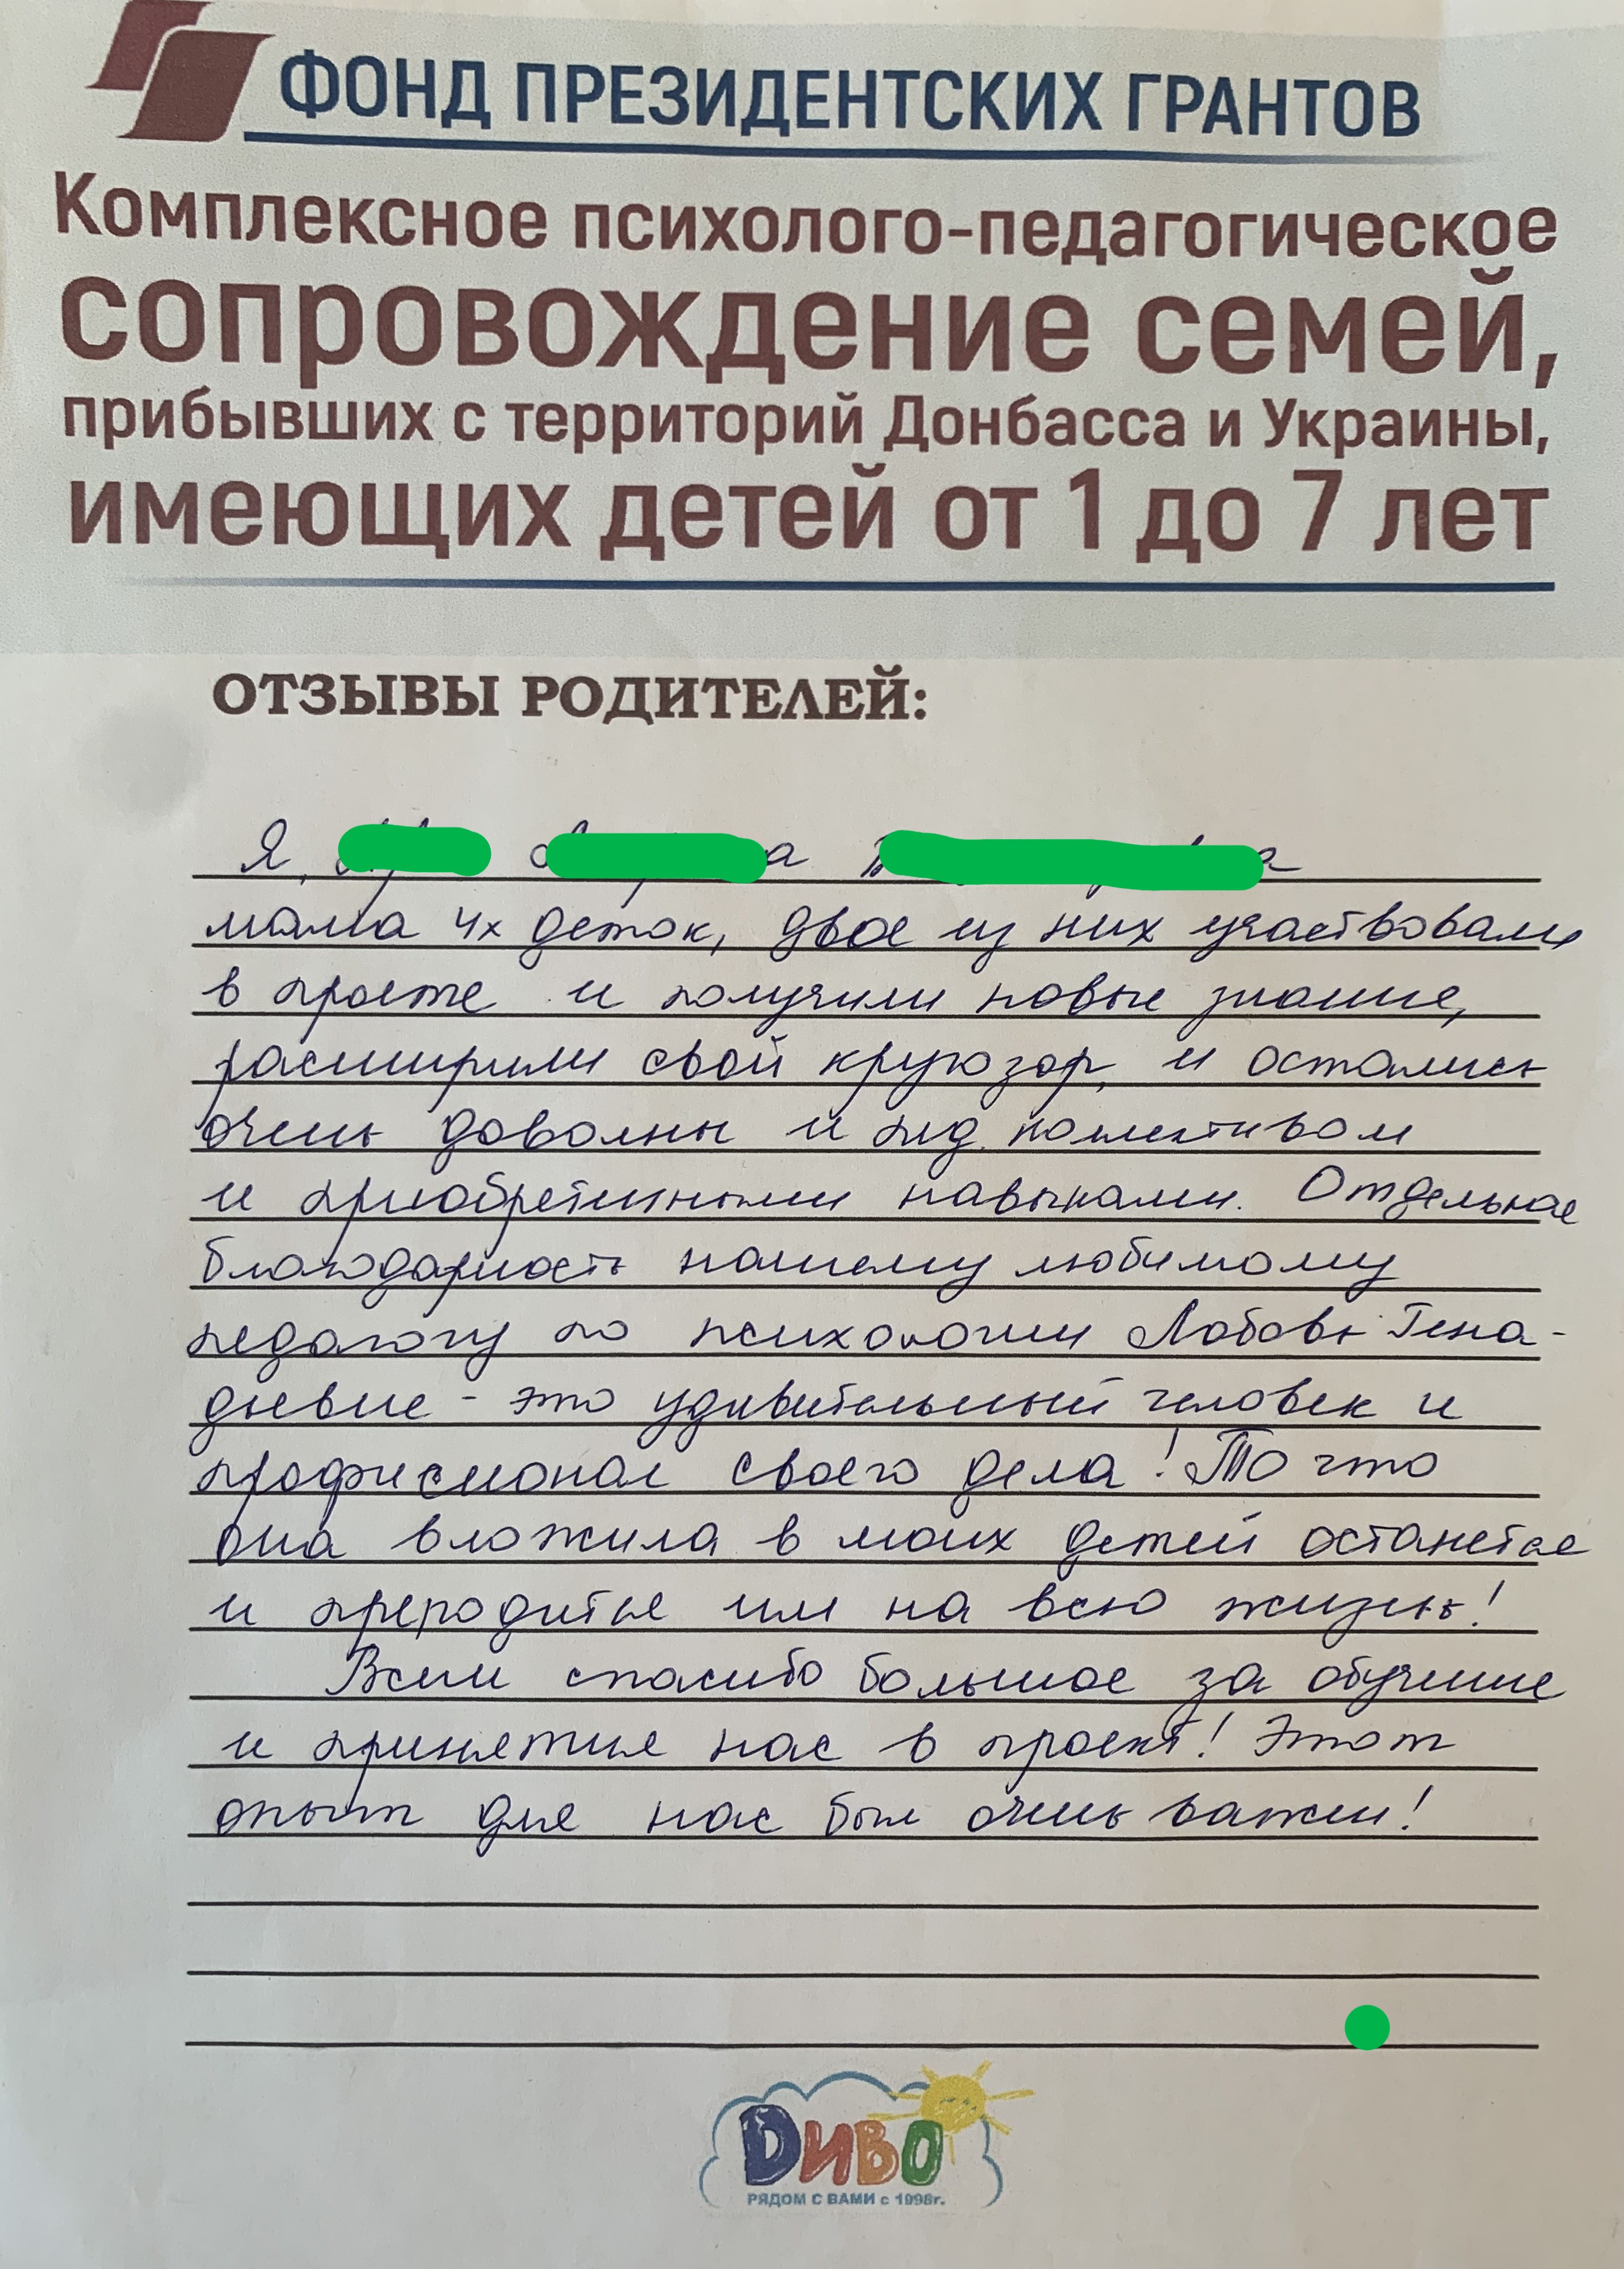 ФОНД ПРЕЗИДЕНТСКИХ ГРАНТОВ
Комплексное психолого-педагогическое
сопровождение семей,
прибывших с территорий Донбасса и Украины,
имеющих детей от 1 до 7 лет
ОТЗЫВЫ РОДИТЕЛЕЙ:
Я,
мама 4х деток, двое из них участвовали
в проекте и получили новые знание,
расширили свой кругозор, и остались
очень довольны и пед. коллективом
и приобретенными навыками. Отдельное
благодарность нашему любимому
педагогу по психологии Любовь Гена-
дьевне - это удивительный человек и
профисионал своего дела! То что
она вложила в моих детей останется
и пригодится им на всю жизнь!
Всем спасибо большое за обучение
и принятие нас в проект! Этот
опыт для нас был очень важен!
Диво
РЯДОМ С ВАМИ с 1998г.